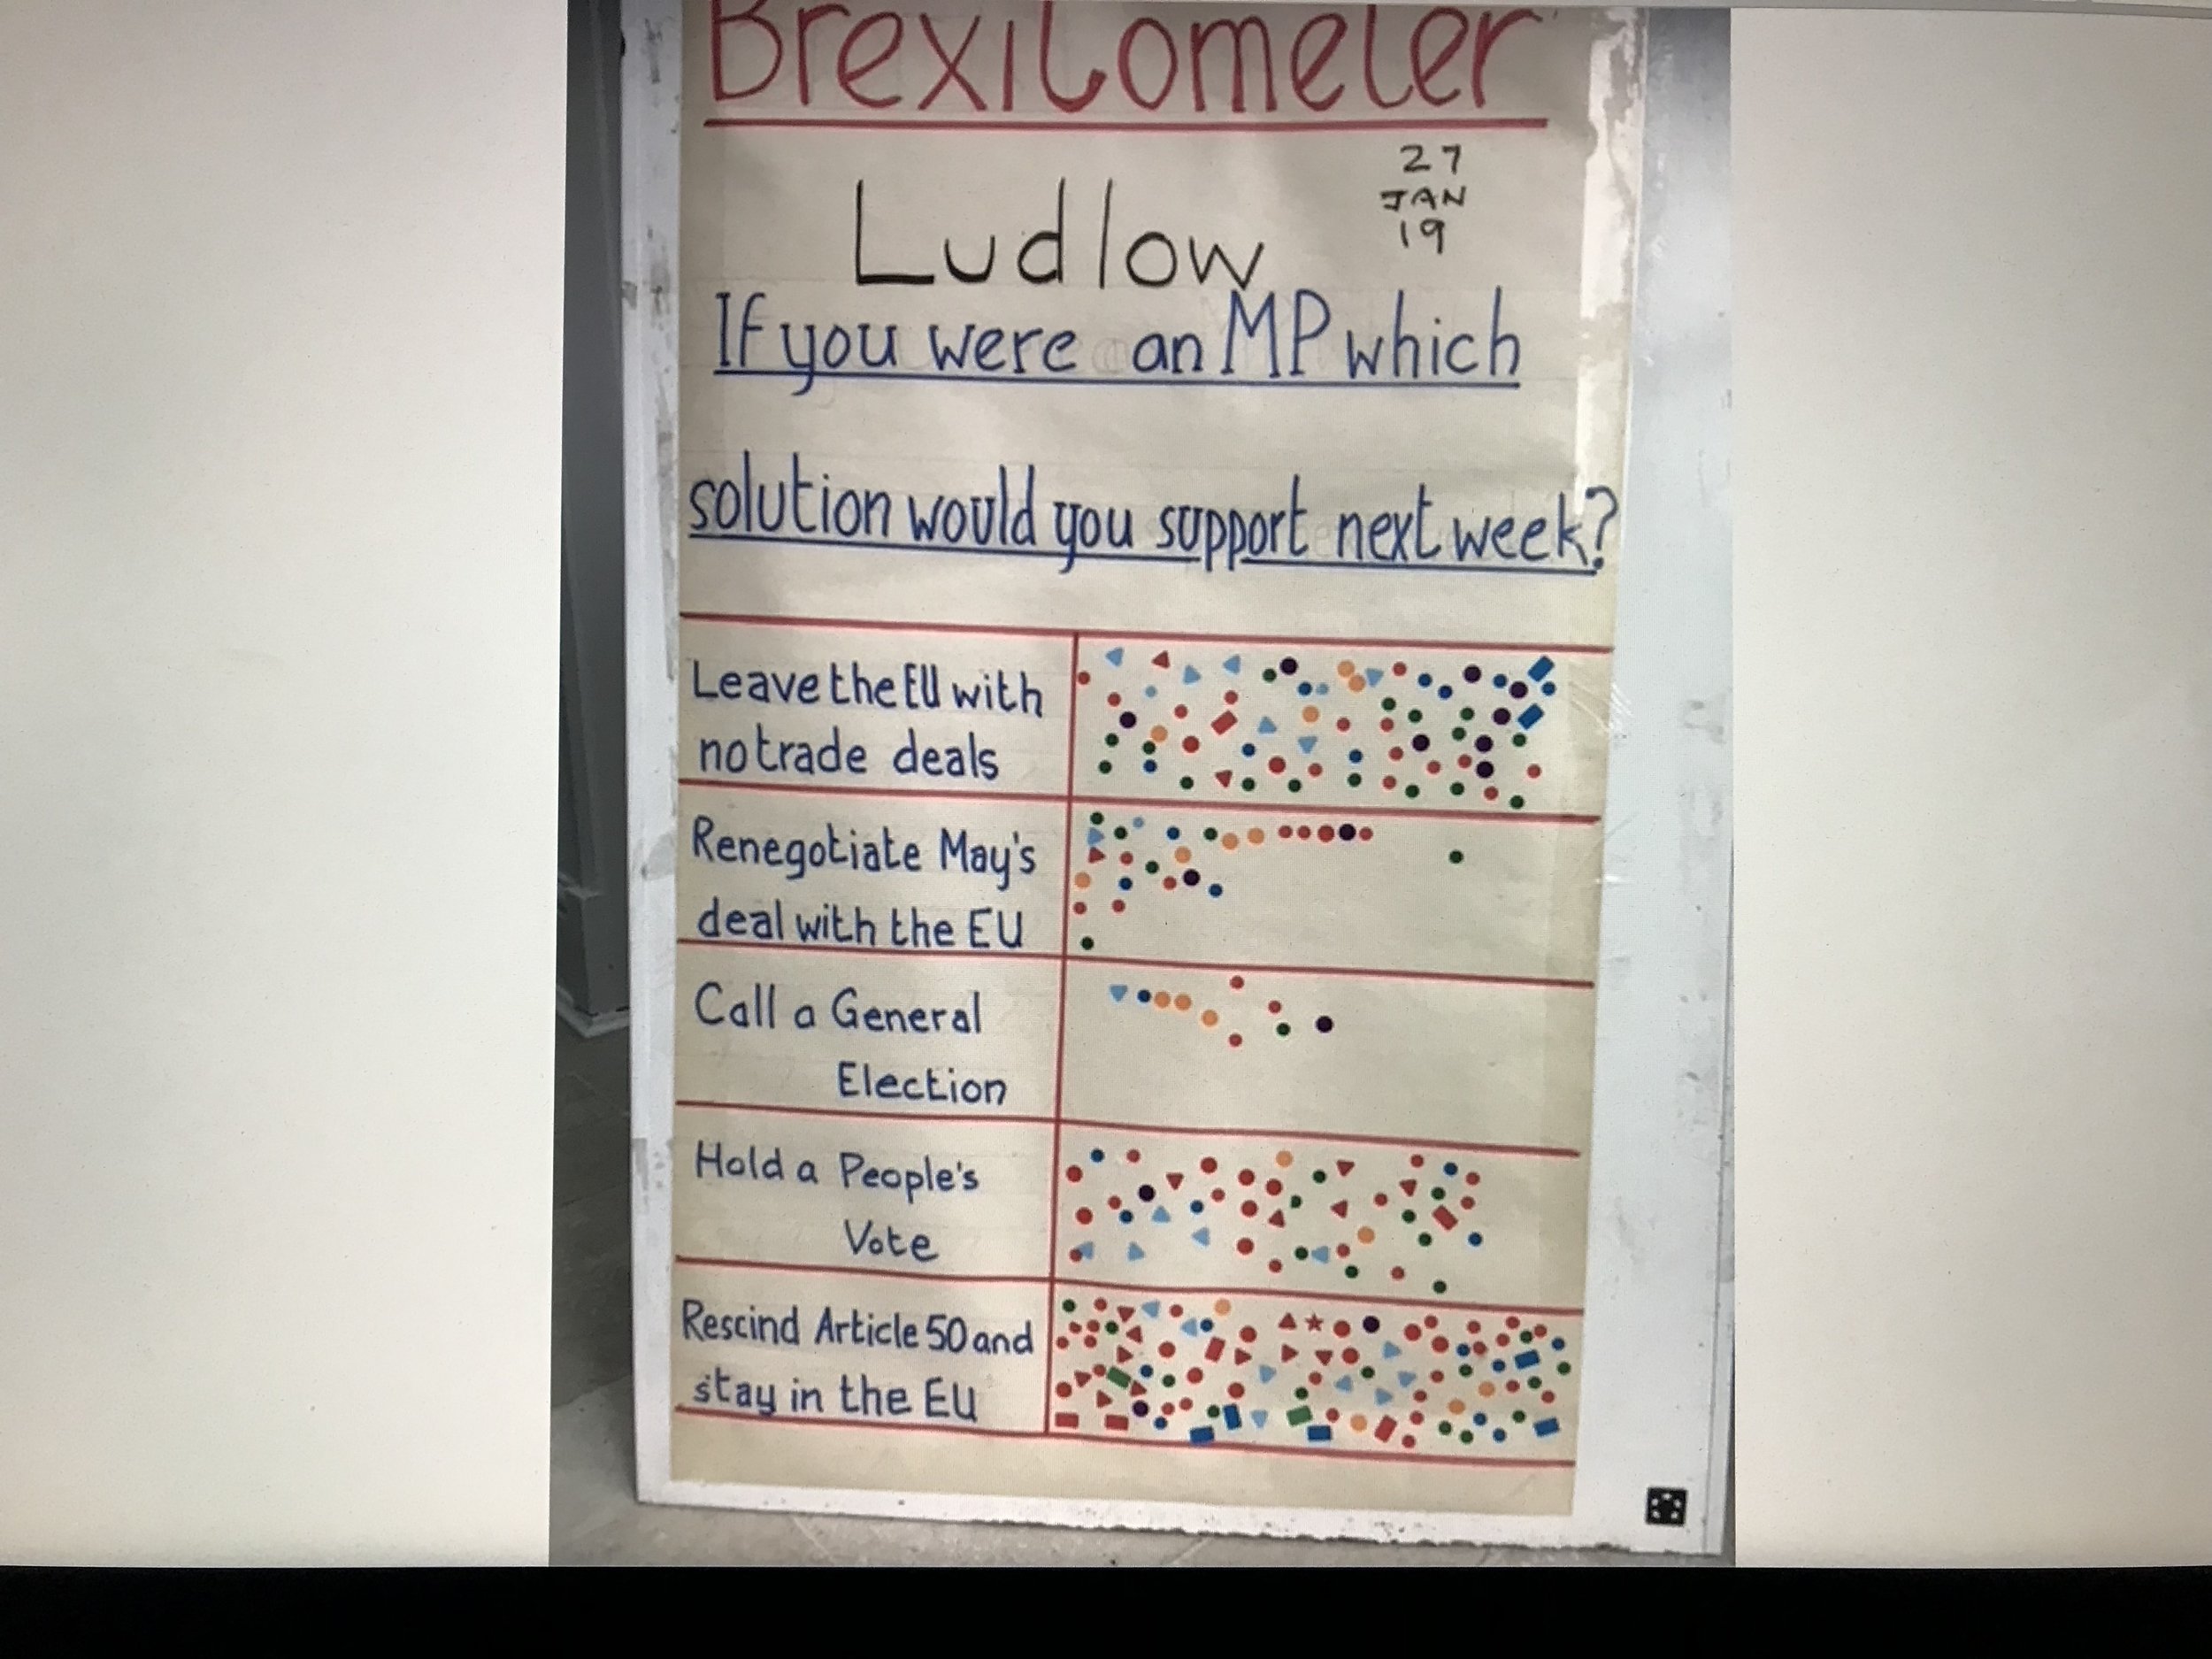 Brexitometer
27
JAN
19
Ludlow
If you were an MP which
solution would you support next week?
Leave the EU with
no trade deals
Renegotiate May's
deal with the EU
Call a General
Election
Hold a People's
Vote
Rescind Article 50 and
stay in the EU